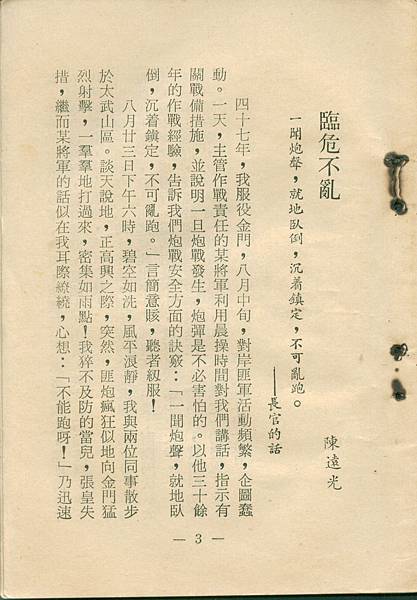 臨危不亂
一聞炮聲，就地臥倒，沉着鎮定，不可亂跑。
——長官的話
陳遠光
四十七年，我服役金門，八月中旬，對岸匪軍活動頻繁，企圖蠢
動。一天，主管作戰責任的某將軍利用晨操時間對我們講話，指示有
關戰備措施，並說明一旦炮戰發生，炮彈是不必害怕的。以他三十餘
年的作戰經驗，告訴我們炮戰安全方面的訣竅：「一聞炮聲，就地臥
倒，沉着鎮定，不可亂跑。」言簡意賅，聽者紉服！
八月廿三日下午六時，碧空如洗，風平浪靜，我與兩位同事散步
於太武山區。談天說地，正高興之際，突然，匪炮瘋狂似地向金門猛
烈射擊，一羣羣地打過來，密集如雨點！我猝不及防的當兒，張皇失
措，繼而某將軍的話似在我耳際繚繞，心想：「不能跑呀！」乃迅速
— 3 —